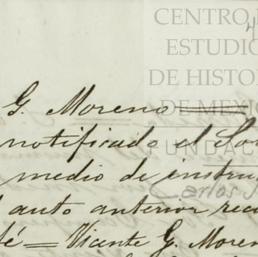 CENTRO
ESTUDIO
DE HISTO
DE MEXIC
FUNDAC
G. Moreno
notificado el
medio de instru
Carlos
auto anterior
fé = Vicente G. Moren